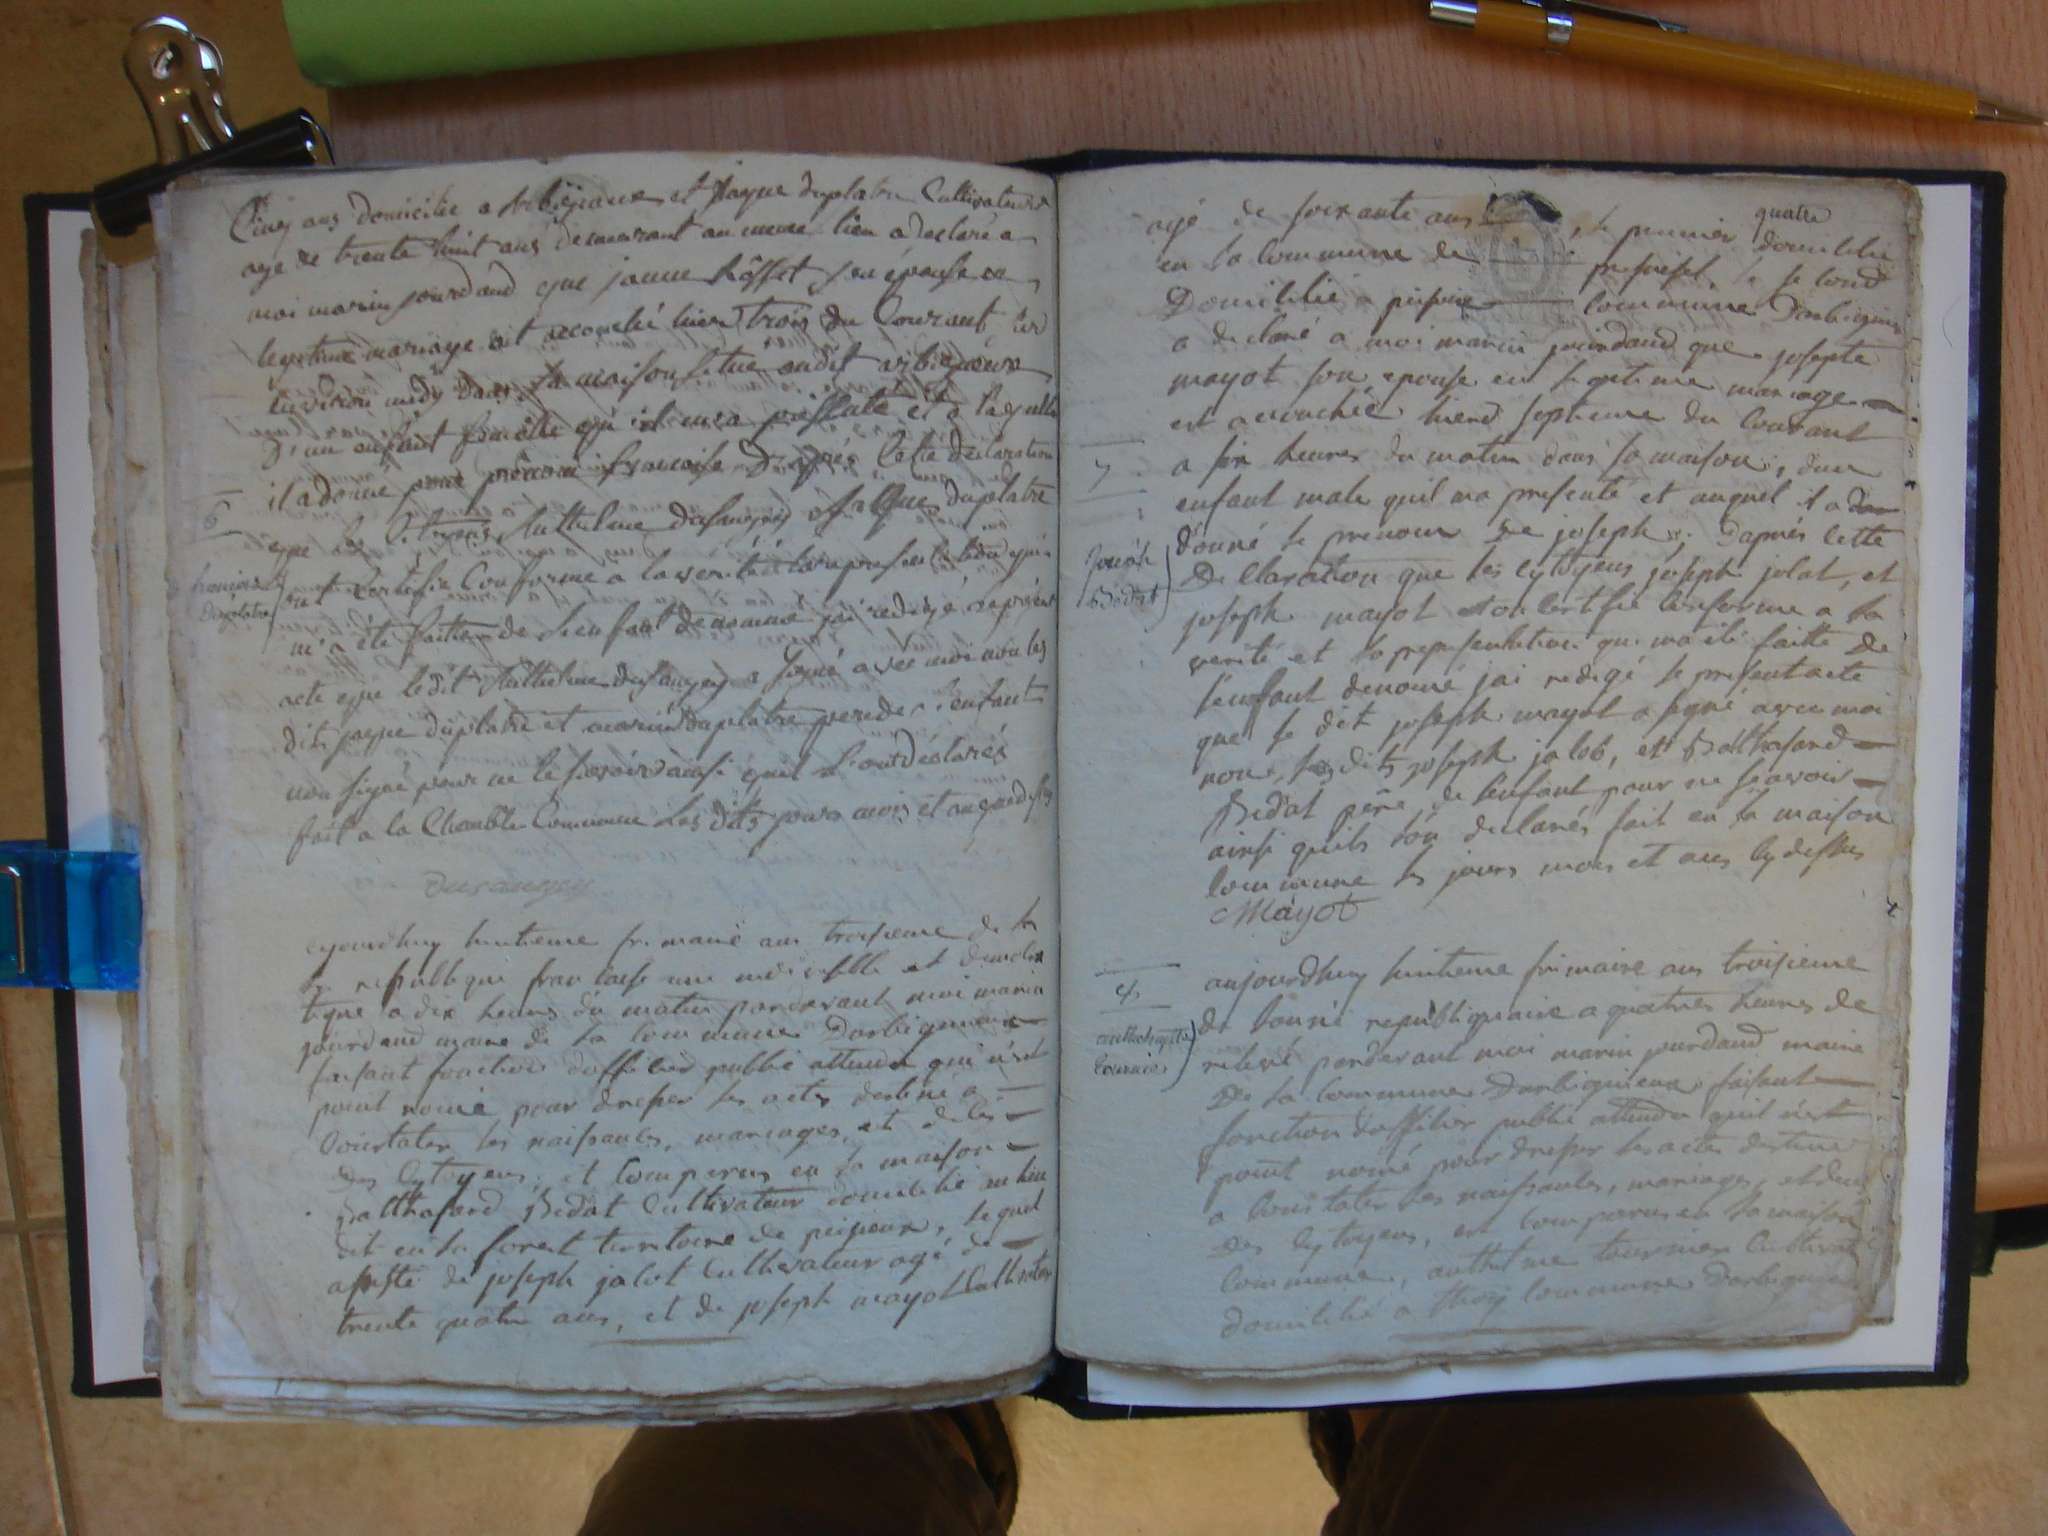 Cinq ans domicilie a arbigneux et Jaque duplatre Cultivateur
age de trente huit ans demeurant au meme lieu a declaré a
moi marin jourdand que janne Rosset son épouse en
legitime mariage est accouché hier trois du Courant sur
environ midy dans sa maison situe au dit arbigneux
d'un enfant femelle qu'il m'a présenté et a laquelle
il a donné pour prénom francoise D'après Cette déclaration
que les Citoyens Anthelme dusaugey et Jaque duplatre
ont Certifié Conforme a la verité la représentation qui
m'a été faitte de l'enfant denommé j'ai redigé le présent
acte que le dit Anthelme dusaugey a signé avec moi non les
dits jaque duplatre et marin duplatre pere de l'enfant
non signé pour ne le savoir ainsi qu'il l'ont déclarés
fait a la Chambre Commune Les dits jours mois et an que dessus
6
francoise
Duplatre
Dusaugey
ajourdhuy huitieme frimaire ans troisieme de la
la republique francaise une indivisible et democra
tique a dix heures du matin pardevant moi marin
jourdand maire de la commune Darbigneux
faisant fonction dofficier public attendu qui n'est
point nomé pour dresser les actes destiné a
Constater les naissances, mariages, et deces
des Cytoyens, et comparus en la maison
Balthasard Bedat Cultivateur domicilié au lieu
dit en la forest territoire de peizieux, lequel
assisté de joseph jalot Cultivateur agé de
trente quatre ans, et de joseph mayot Cultivateur
agé de soixante ans , le premier quatre domicilié
en la Commune de premeisel le second
Domicilié a peizieux Commune Darbigneux
a declaré a moi marin jourdand que josepte
mayot son epouse en legitime mariage
est accouchée hierd septieme du Courant
a six heures du matin dans sa maison, dun
enfant male quil ma presenté et auquel il a don
donné le prenom de joseph; Daprés cette
Declaration que les cytoyens joseph jolat, et
joseph mayot ont certifié Conforme a la
verité et la representation qui ma été faitte de
lenfant denomé jai redigé le present acte
que le dit joseph mayot a signé avec moi
non les dits joseph jalob, et Balthasard
Bedat père de lenfant pour ne scavoir
ainsi quils l'on declarés fait en la maison
Commune les jours mois et ans cy dessus
Mayot
7
Joseph
Bedat
aujourdhuy huitieme frimaire ans troisieme
de l'anné republiquaine a quatres heures de
relevé pardevant moi marin jourdand maire
De la Commune Darbignieux faisant
fonction d'officier public attendu quil n'est
point nomé pour dresser les actes destiné
a Constater les naissances, mariages, et deces
Des Cytoyens, est comparus en la maison
Commune, anthelme tournier Cultivat
domicilié a thoy Commune Darbignieux
anthelmette
tournier